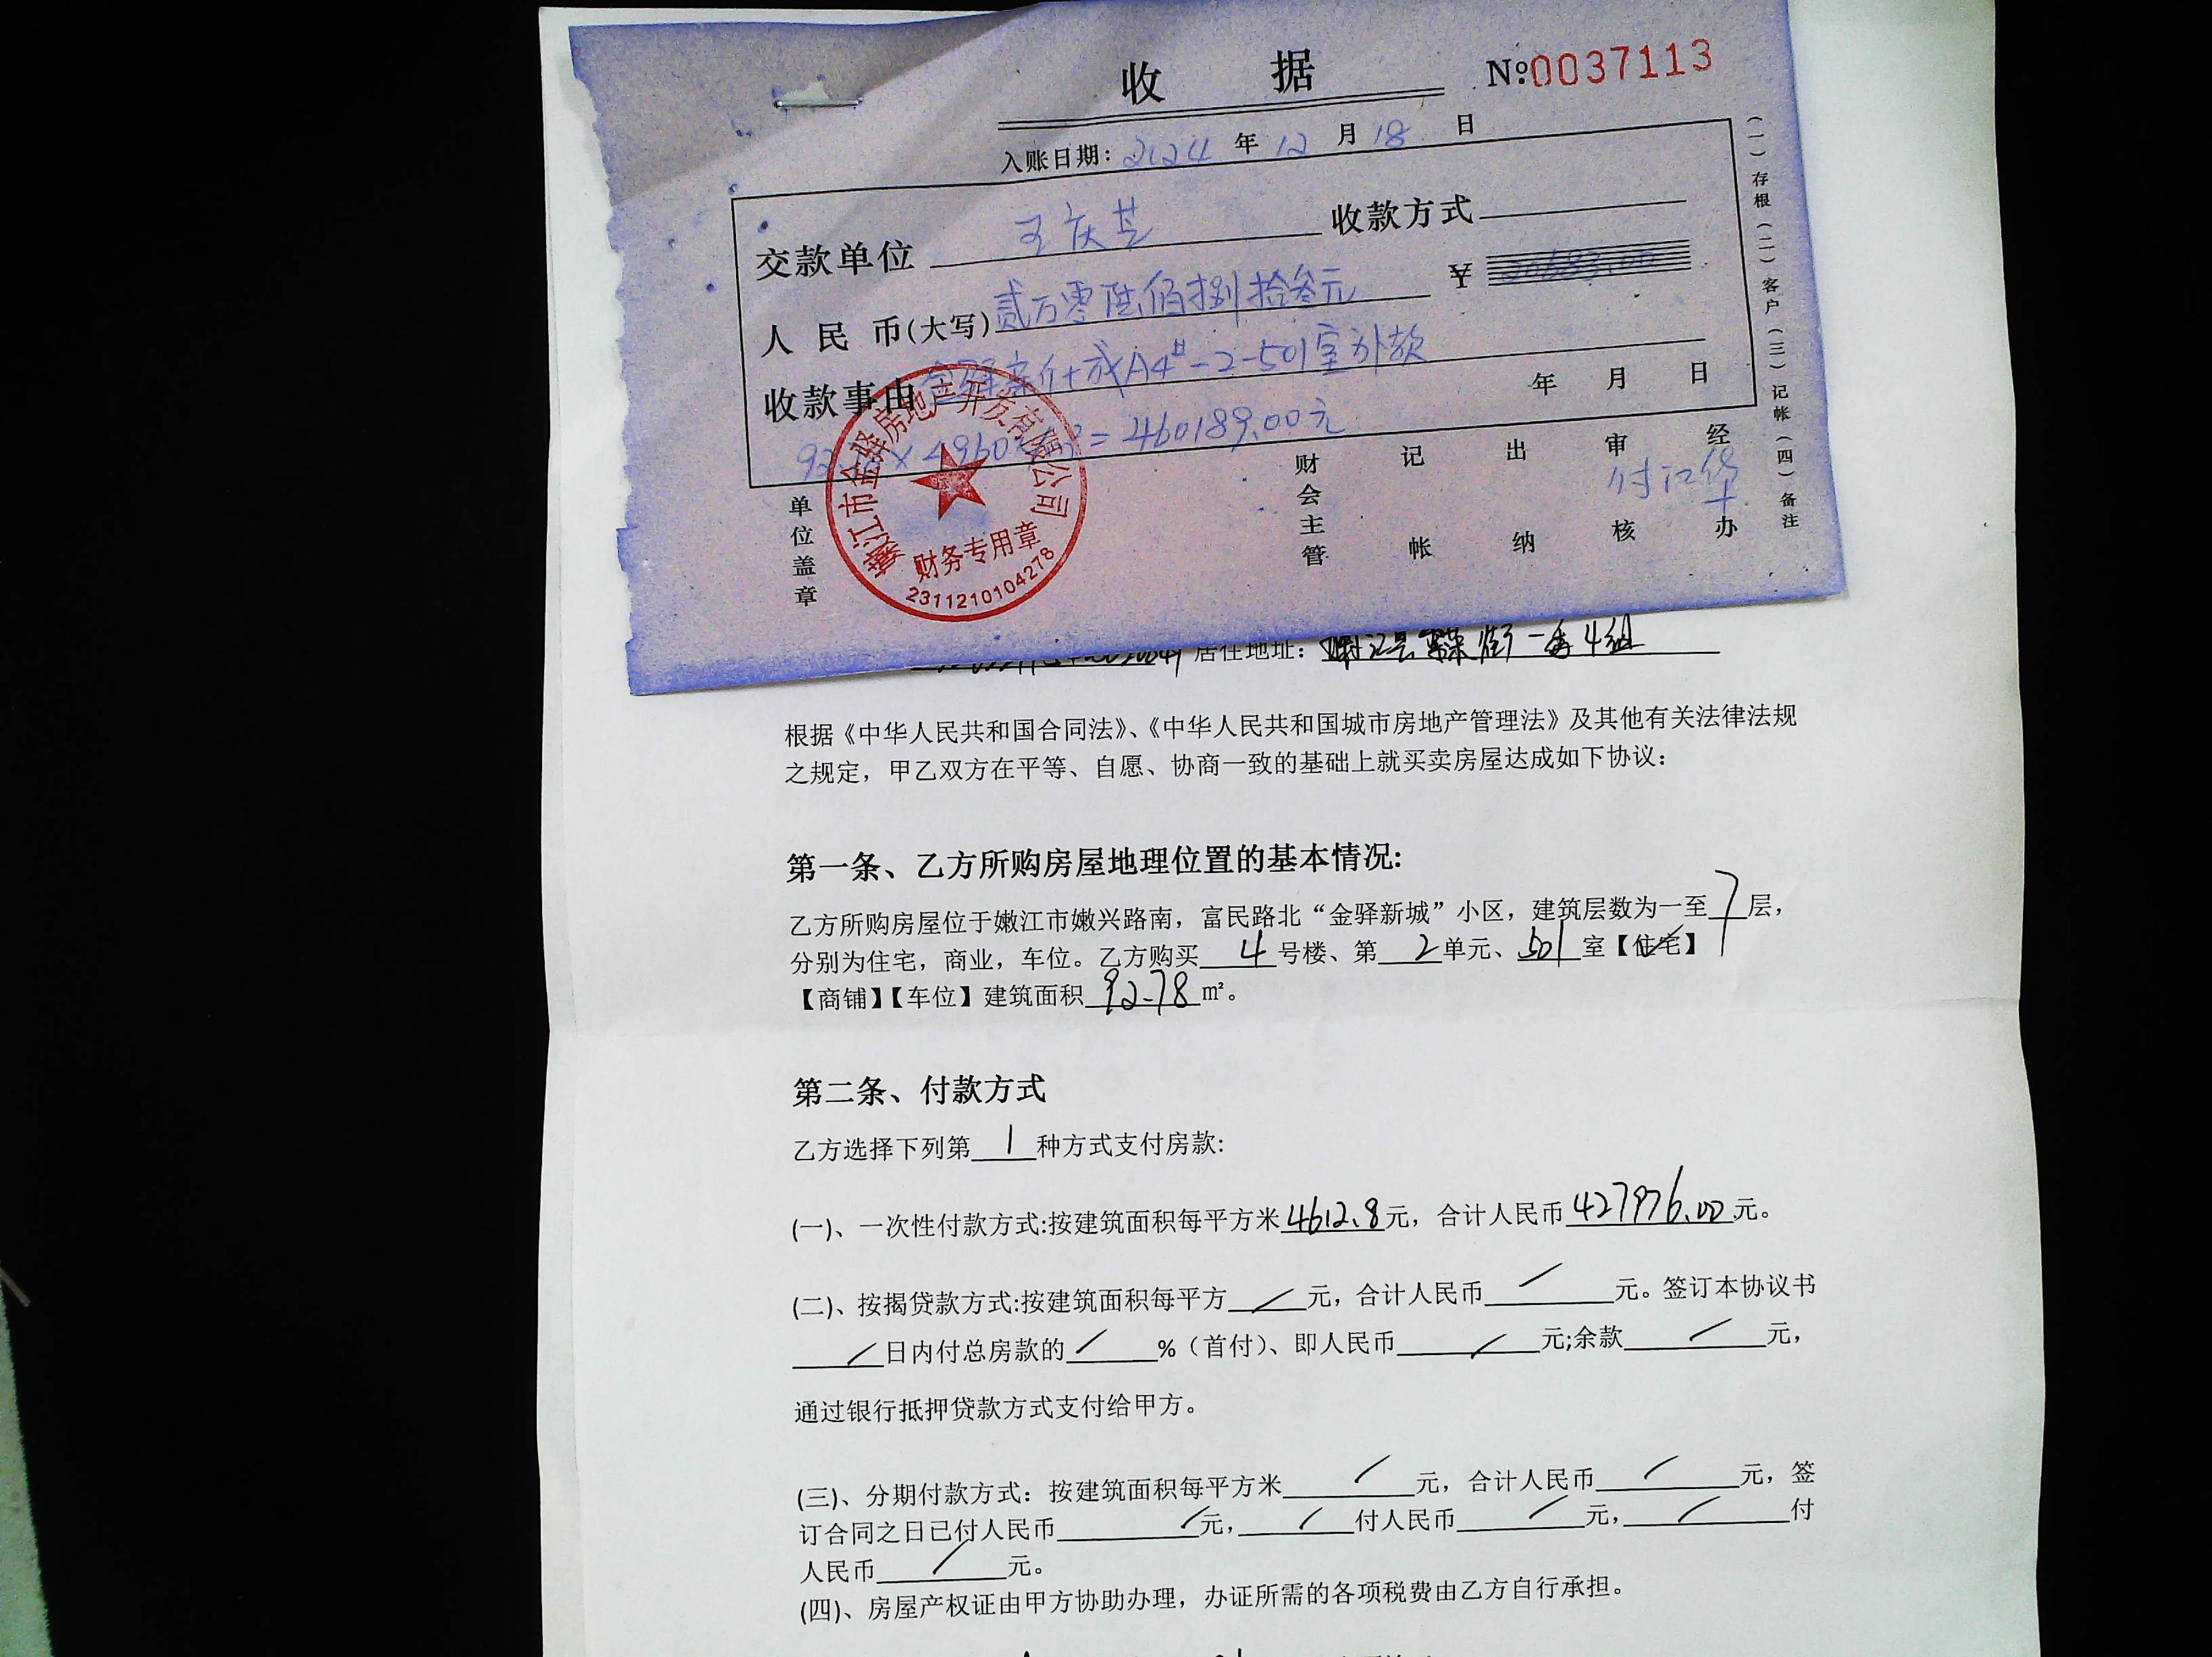 收 据
№0037113
入账日期: 2024 年 12 月 18 日
交款单位 王庆芝 收款方式
人民币(大写) 贰万零陆佰捌拾叁元 ¥ 20683.00
收款事由 金驿新城A4#-2-501室补款
年 月 日
92.78×4960元/m²=460189.00元
单位盖章
财会主管 记帐 出纳 审核 经办
付江华
(一)存根(二)客户(三)记帐(四)备注
嫩江市金驿房地产开发有限公司
财务专用章
2311210104278
居住地址: 嫩江县 街一委4组
根据《中华人民共和国合同法》、《中华人民共和国城市房地产管理法》及其他有关法律法规
之规定，甲乙双方在平等、自愿、协商一致的基础上就买卖房屋达成如下协议：
第一条、乙方所购房屋地理位置的基本情况:
乙方所购房屋位于嫩江市嫩兴路南，富民路北“金驿新城”小区，建筑层数为一至 7 层，
分别为住宅，商业，车位。乙方购买 4 号楼、第 2 单元、 501 室【住宅】
【商铺】【车位】建筑面积 92.78 m²。
第二条、付款方式
乙方选择下列第 1 种方式支付房款:
(一)、一次性付款方式:按建筑面积每平方米 4612.8 元，合计人民币 427976.00 元。
(二)、按揭贷款方式:按建筑面积每平方 / 元，合计人民币 / 元。签订本协议书
/ 日内付总房款的 / %（首付）、即人民币 / 元;余款 / 元，
通过银行抵押贷款方式支付给甲方。
(三)、分期付款方式：按建筑面积每平方米 / 元，合计人民币 / 元，签
订合同之日已付人民币 / 元, / 付人民币 / 元, / 付
人民币 / 元。
(四)、房屋产权证由甲方协助办理，办证所需的各项税费由乙方自行承担。